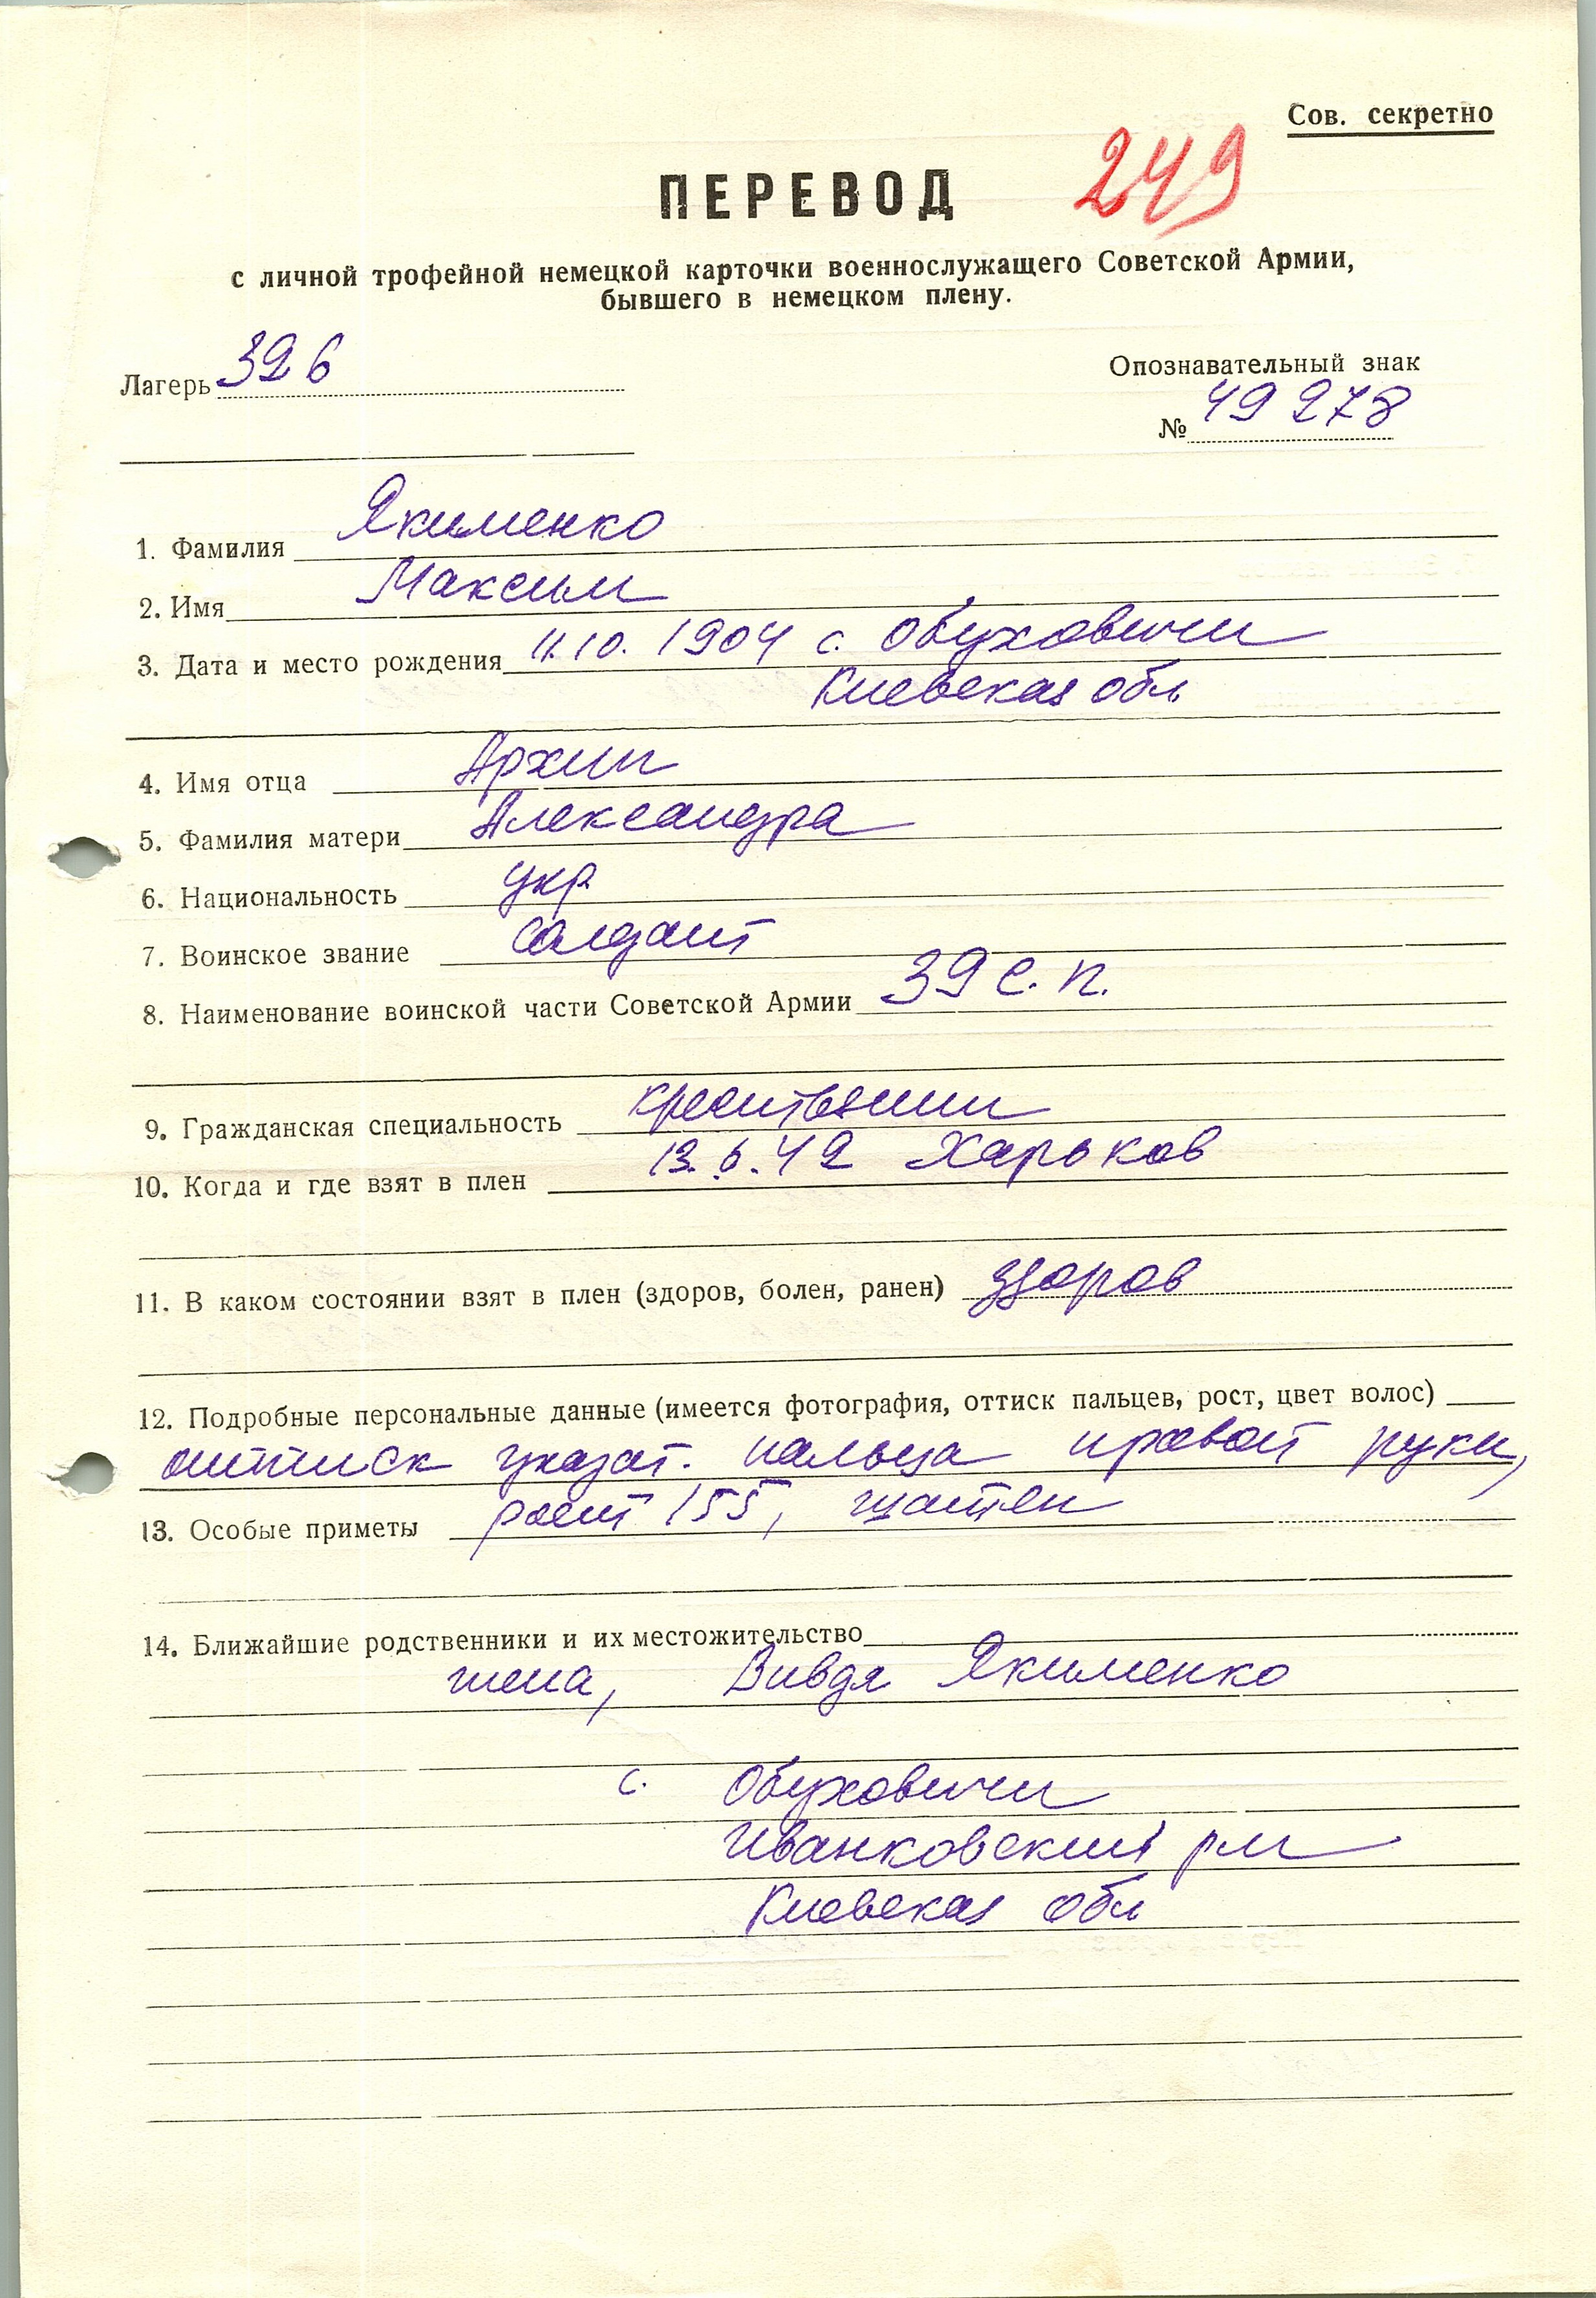 Сов. секретно
ПЕРЕВОД 249
с личной трофейной немецкой карточки военнослужащего Советской Армии,
бывшего в немецком плену.
Лагерь 326
Опознавательный знак
№ 49278
1. Фамилия Якименко
2. Имя Максим
3. Дата и место рождения 11.10.1904 с. Обуховичи
Киевская обл
4. Имя отца Архип
5. Фамилия матери Александра
6. Национальность укр
7. Воинское звание солдат
8. Наименование воинской части Советской Армии 39 с.п.
9. Гражданская специальность крестьянин
10. Когда и где взят в плен 13.6.42 Харьков
11. В каком состоянии взят в плен (здоров, болен, ранен) здоров
12. Подробные персональные данные (имеется фотография, оттиск пальцев, рост, цвет волос)
оттиск указат. пальца правой руки,
13. Особые приметы рост 155, шатен
14. Ближайшие родственники и их местожительство
жена, Вивдя Якименко
с. Обуховичи
Иванковский р-н
Киевская обл